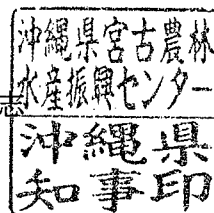 沖縄県宮古農林
志水産振興センター
沖縄県
知事印